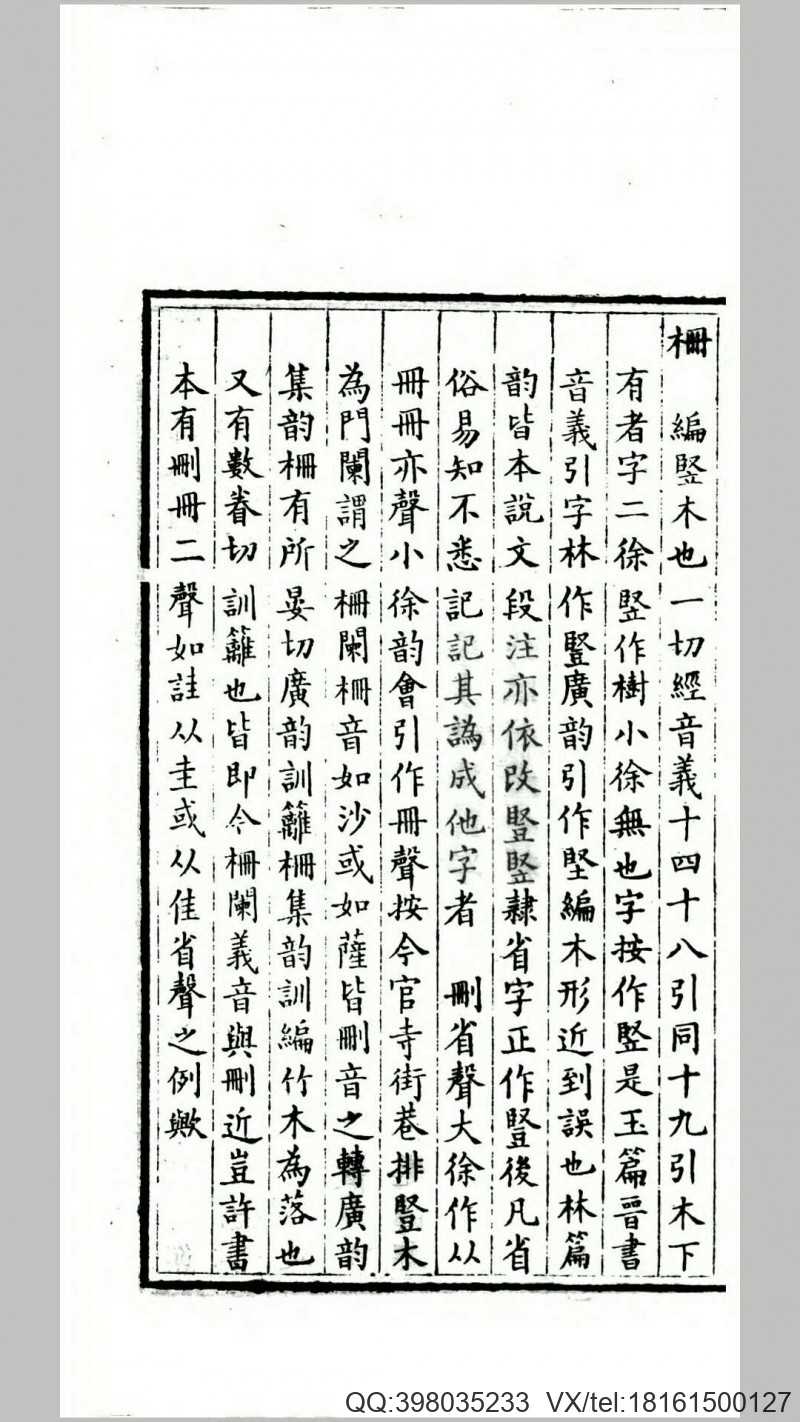 柵 編竪木也一切經音義十四十八引同十九引木下
有者字二徐竪作樹小徐無也字按作竪是玉篇晉書
音義引字林作豎廣韵引作堅編木形近到誤也林篇
韵皆本說文段注亦依改豎竪隸省字正作豎後凡省
俗易知不悉記記其譌成他字者 刪省聲大徐作从
冊冊亦聲小徐韵會引作冊聲按今官寺街巷排豎木
為門闌謂之柵闌柵音如沙或如薩皆刪音之轉廣韵
集韵柵有所晏切廣韵訓籬柵集韵訓編竹木為落也
又有數眷切訓籬也皆即今柵闌義音與刪近豈許書
本有刪冊二聲如詿从圭或从佳省聲之例歟
QQ:398035233 VX/tel:18161500127